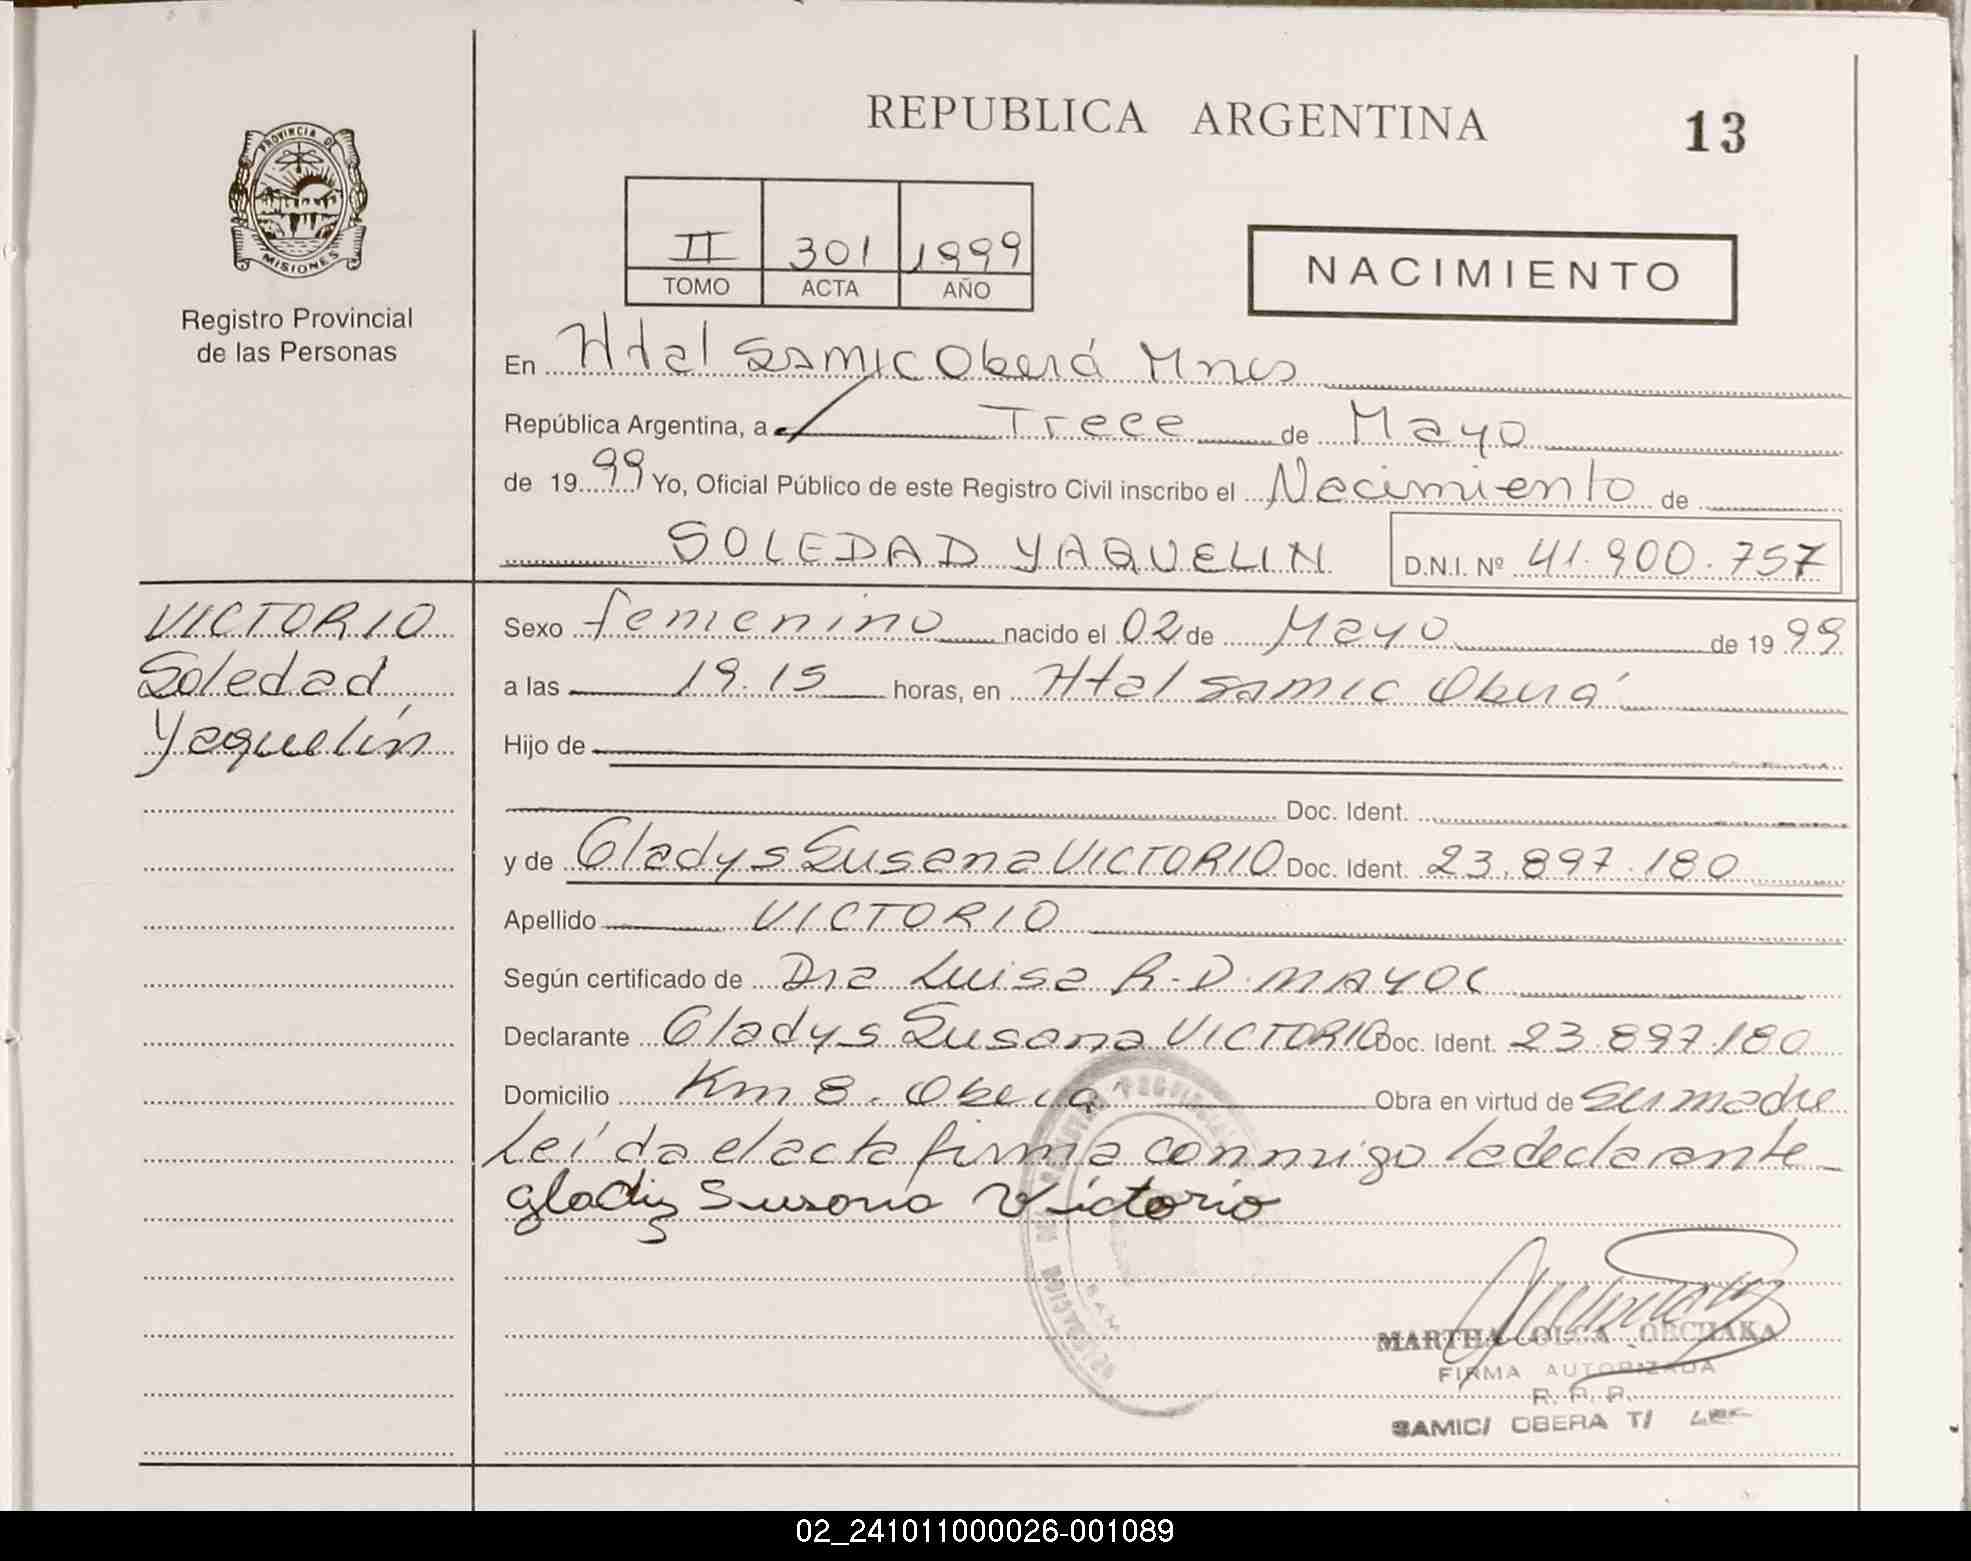 REPUBLICA ARGENTINA
13
PROVINCIA DE
MISIONES
Registro Provincial
de las Personas
II 301 1999
TOMO ACTA AÑO
NACIMIENTO
En Htal SAMIC Oberá Mnes
República Argentina, a Trece de Mayo
de 19 99 Yo, Oficial Público de este Registro Civil inscribo el Nacimiento de
SOLEDAD YAQUELIN D.N.I. Nº 41.900.757
VICTORIO
Soledad
Yaquelín
Sexo femenino nacido el 02 de Mayo de 19 99
a las 19.15 horas, en Htal SAMIC Oberá
Hijo de
Doc. Ident.
y de Gladys Susana VICTORIO Doc. Ident. 23.897.180
Apellido VICTORIO
Según certificado de Dra Luisa R.D. MAYOL
Declarante Gladys Susana VICTORIO Doc. Ident. 23.897.180
Domicilio Km 8. Oberá Obra en virtud de su madre
Leída el acta firma conmigo la declarante
Gladis Susana Victorio
MARTHA OLGA
FIRMA AUTORIZADA
R. P. P.
SAMIC/ OBERA T/
02_241011000026-001089